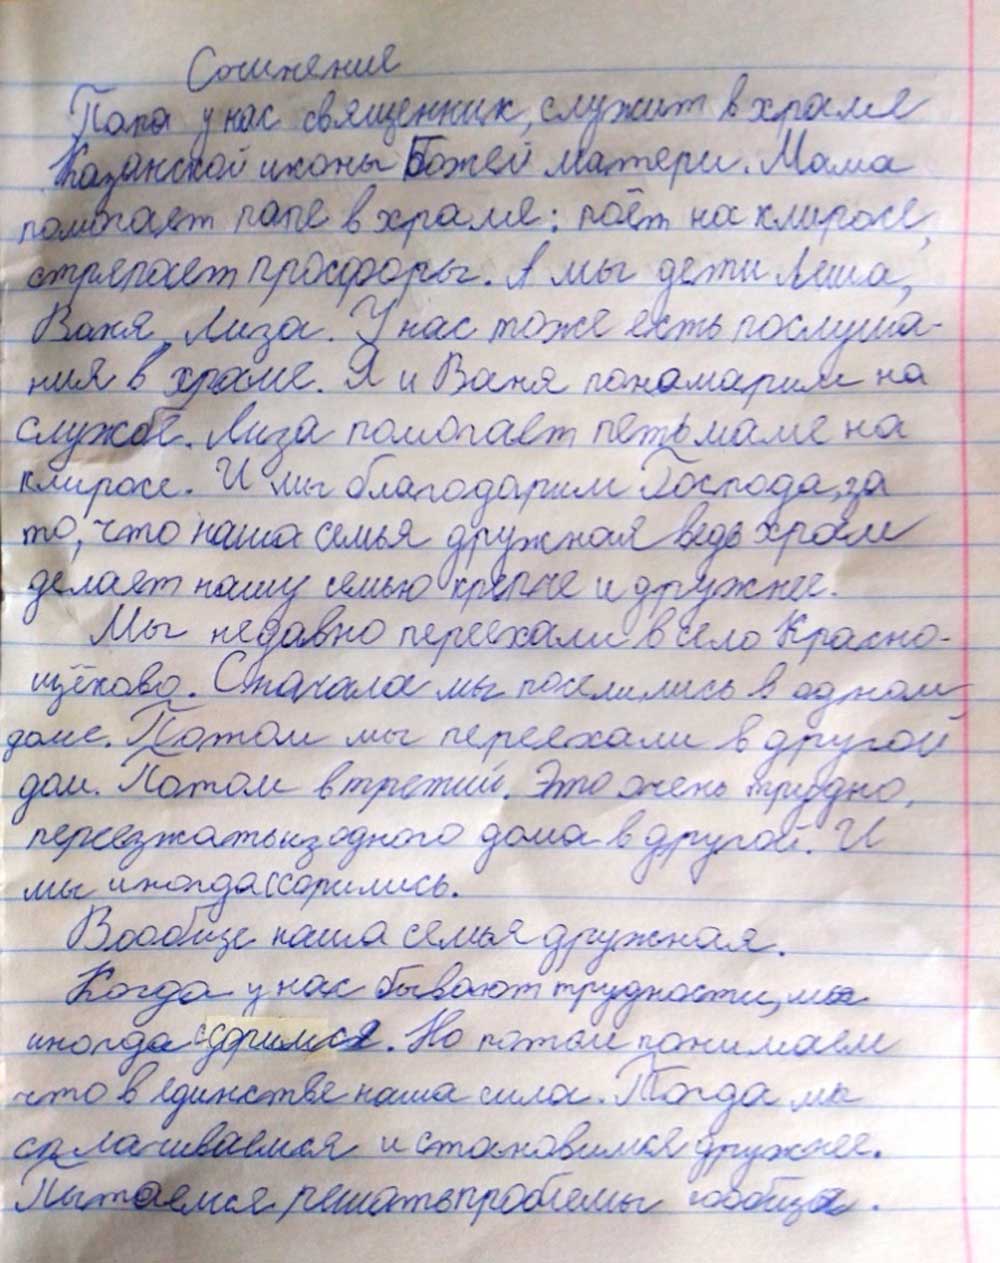 Сочинение
Папа у нас священник, служит в храме
Казанской иконы Божей матери. Мама
помогает папе в храме: поёт на клиросе,
стряпает просфоры. А мы дети Лёша,
Ваня, Лиза. У нас тоже есть послуша-
ния в храме. Я и Ваня понамарим на
службе. Лиза помогает петь маме на
клиросе. И мы благодарим Господа, за
то, что наша семья дружная ведь храм
делает нашу семью крепче и дружнее.
Мы недавно переехали в село Красно-
щёково. Сначала мы поселились в одном
доме. Потом мы переехали в другой
дом. Потом в третий. Это очень трудно,
переезжать из одного дома в другой. И
мы иногда ссорились.
Вообще наша семья дружная.
Когда у нас бывают трудности, мы
иногда ссоримся. Но потом понимаем
что в единстве наша сила. Тогда мы
сплачиваемся и становимся дружнее.
Пытаемся решать проблемы сообща.